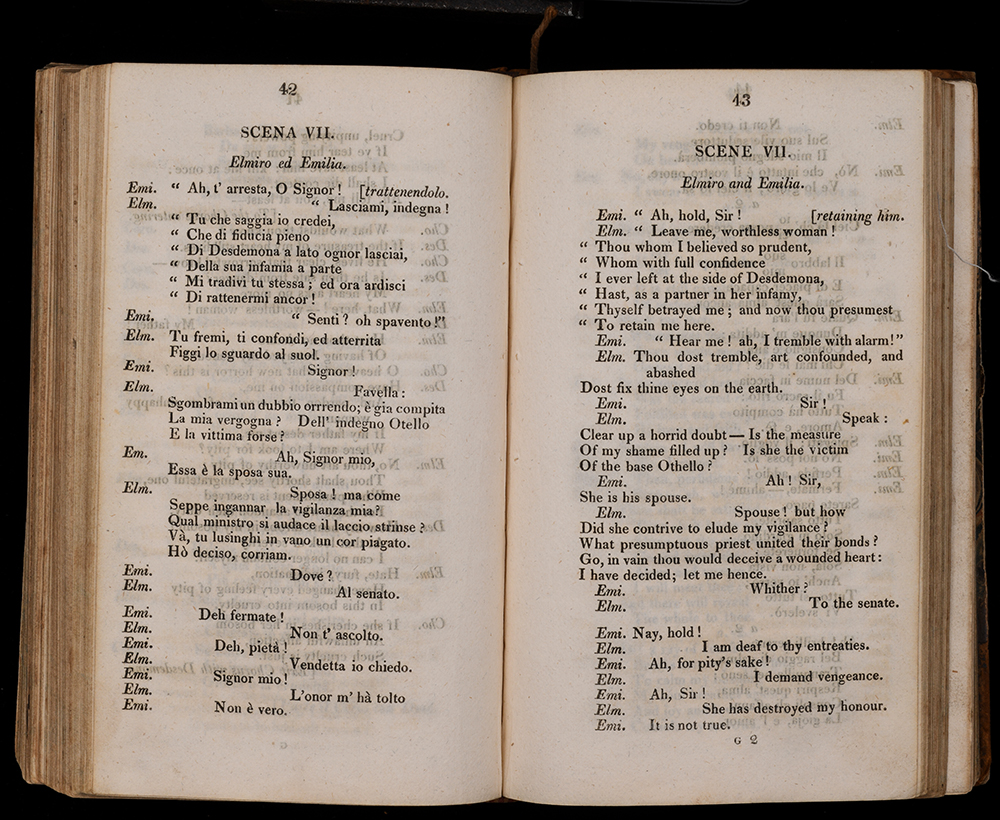 42
SCENA VII.
Elmiro ed Emilia.
Emi. “ Ah, t' arresta, O Signor ! [trattenendolo.
Elm. “ Lasciami, indegna !
“ Tu che saggia io credei,
“ Che di fiducia pieno
“ Di Desdemona a lato ognor lasciai,
“ Della sua infamia a parte
“ Mi tradivi tu stessa ; ed ora ardisci
“ Di rattenermi ancor !
Emi. “ Senti ? oh spavento !”
Elm. Tu fremi, ti confondi, ed atterrita
Figgi lo sguardo al suol.
Emi. Signor !
Elm. Favella :
Sgombrami un dubbio orrrendo; è gia compita
La mia vergogna ? Dell' indegno Otello
E la vittima forse ?
Em. Ah, Signor mio,
Essa è la sposa sua.
Elm. Sposa ! ma come
Seppe ingannar la vigilanza mia?
Qual ministro si audace il laccio strinse ?
Và, tu lusinghi in vano un cor piagato.
Hò deciso, corriam.
Emi. Dove ?
Elm. Al senato.
Emi. Deh fermate !
Elm. Non t' ascolto.
Emi. Deh, pietà !
Elm. Vendetta io chiedo.
Emi. Signor mio !
Elm. L'onor m' hà tolto
Emi. Non è vero.
43
SCENE VII.
Elmiro and Emilia.
Emi. “ Ah, hold, Sir ! [retaining him.
Elm. “ Leave me, worthless woman !
“ Thou whom I believed so prudent,
“ Whom with full confidence
“ I ever left at the side of Desdemona,
“ Hast, as a partner in her infamy,
“ Thyself betrayed me ; and now thou presumest
“ To retain me here.
Emi. “ Hear me ! ah, I tremble with alarm!”
Elm. Thou dost tremble, art confounded, and
abashed
Dost fix thine eyes on the earth.
Emi. Sir !
Elm. Speak :
Clear up a horrid doubt — Is the measure
Of my shame filled up ? Is she the victim
Of the base Othello ?
Emi. Ah ! Sir,
She is his spouse.
Elm. Spouse ! but how
Did she contrive to elude my vigilance ?
What presumptuous priest united their bonds ?
Go, in vain thou would deceive a wounded heart :
I have decided; let me hence.
Emi. Whither ?
Elm. To the senate.
Emi. Nay, hold !
Elm. I am deaf to thy entreaties.
Emi. Ah, for pity's sake !
Elm. I demand vengeance.
Emi. Ah, Sir !
Elm. She has destroyed my honour.
Emi. It is not true.
G 2